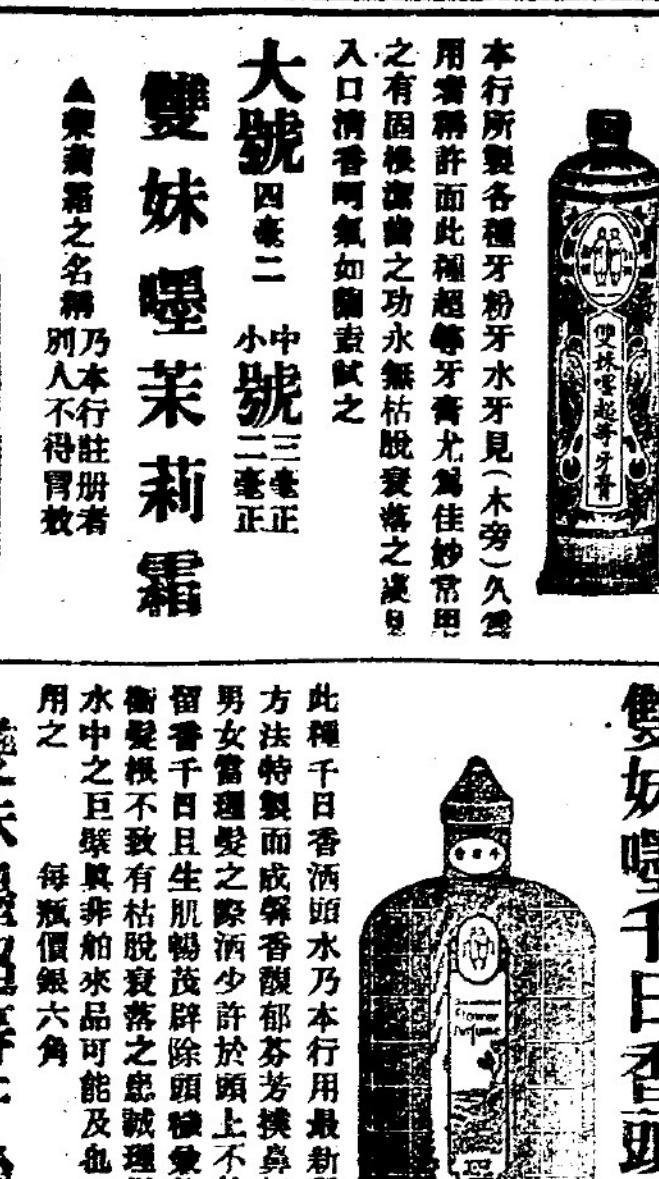 雙妹嚜超等牙膏
本行所製各種牙粉牙水牙見(木旁)久
用者稱許而此種超等牙膏尤為佳妙常用
之有固根潔齒之功永無枯脫衰落之
入口清香呵氣如蘭盍試之
大號四毫二
中號三毫正
小號二毫正
雙妹嚜茉莉霜
▲茉莉霜之名稱
乃本行註册者
別人不得冒效
雙妹嚜千日香頭
千日香
Flower
Perfume
此種千日香洒頭水乃本行用最新
方法特製而成馨香馥郁芬芳撲鼻
男女當理髮之際洒少許於頭上不
留香千日且生肌暢茂辟除頭
髮根不致有枯脫衰落之患誠理
水中之巨擘眞非舶來品可能及也
用之
每瓶價銀六角